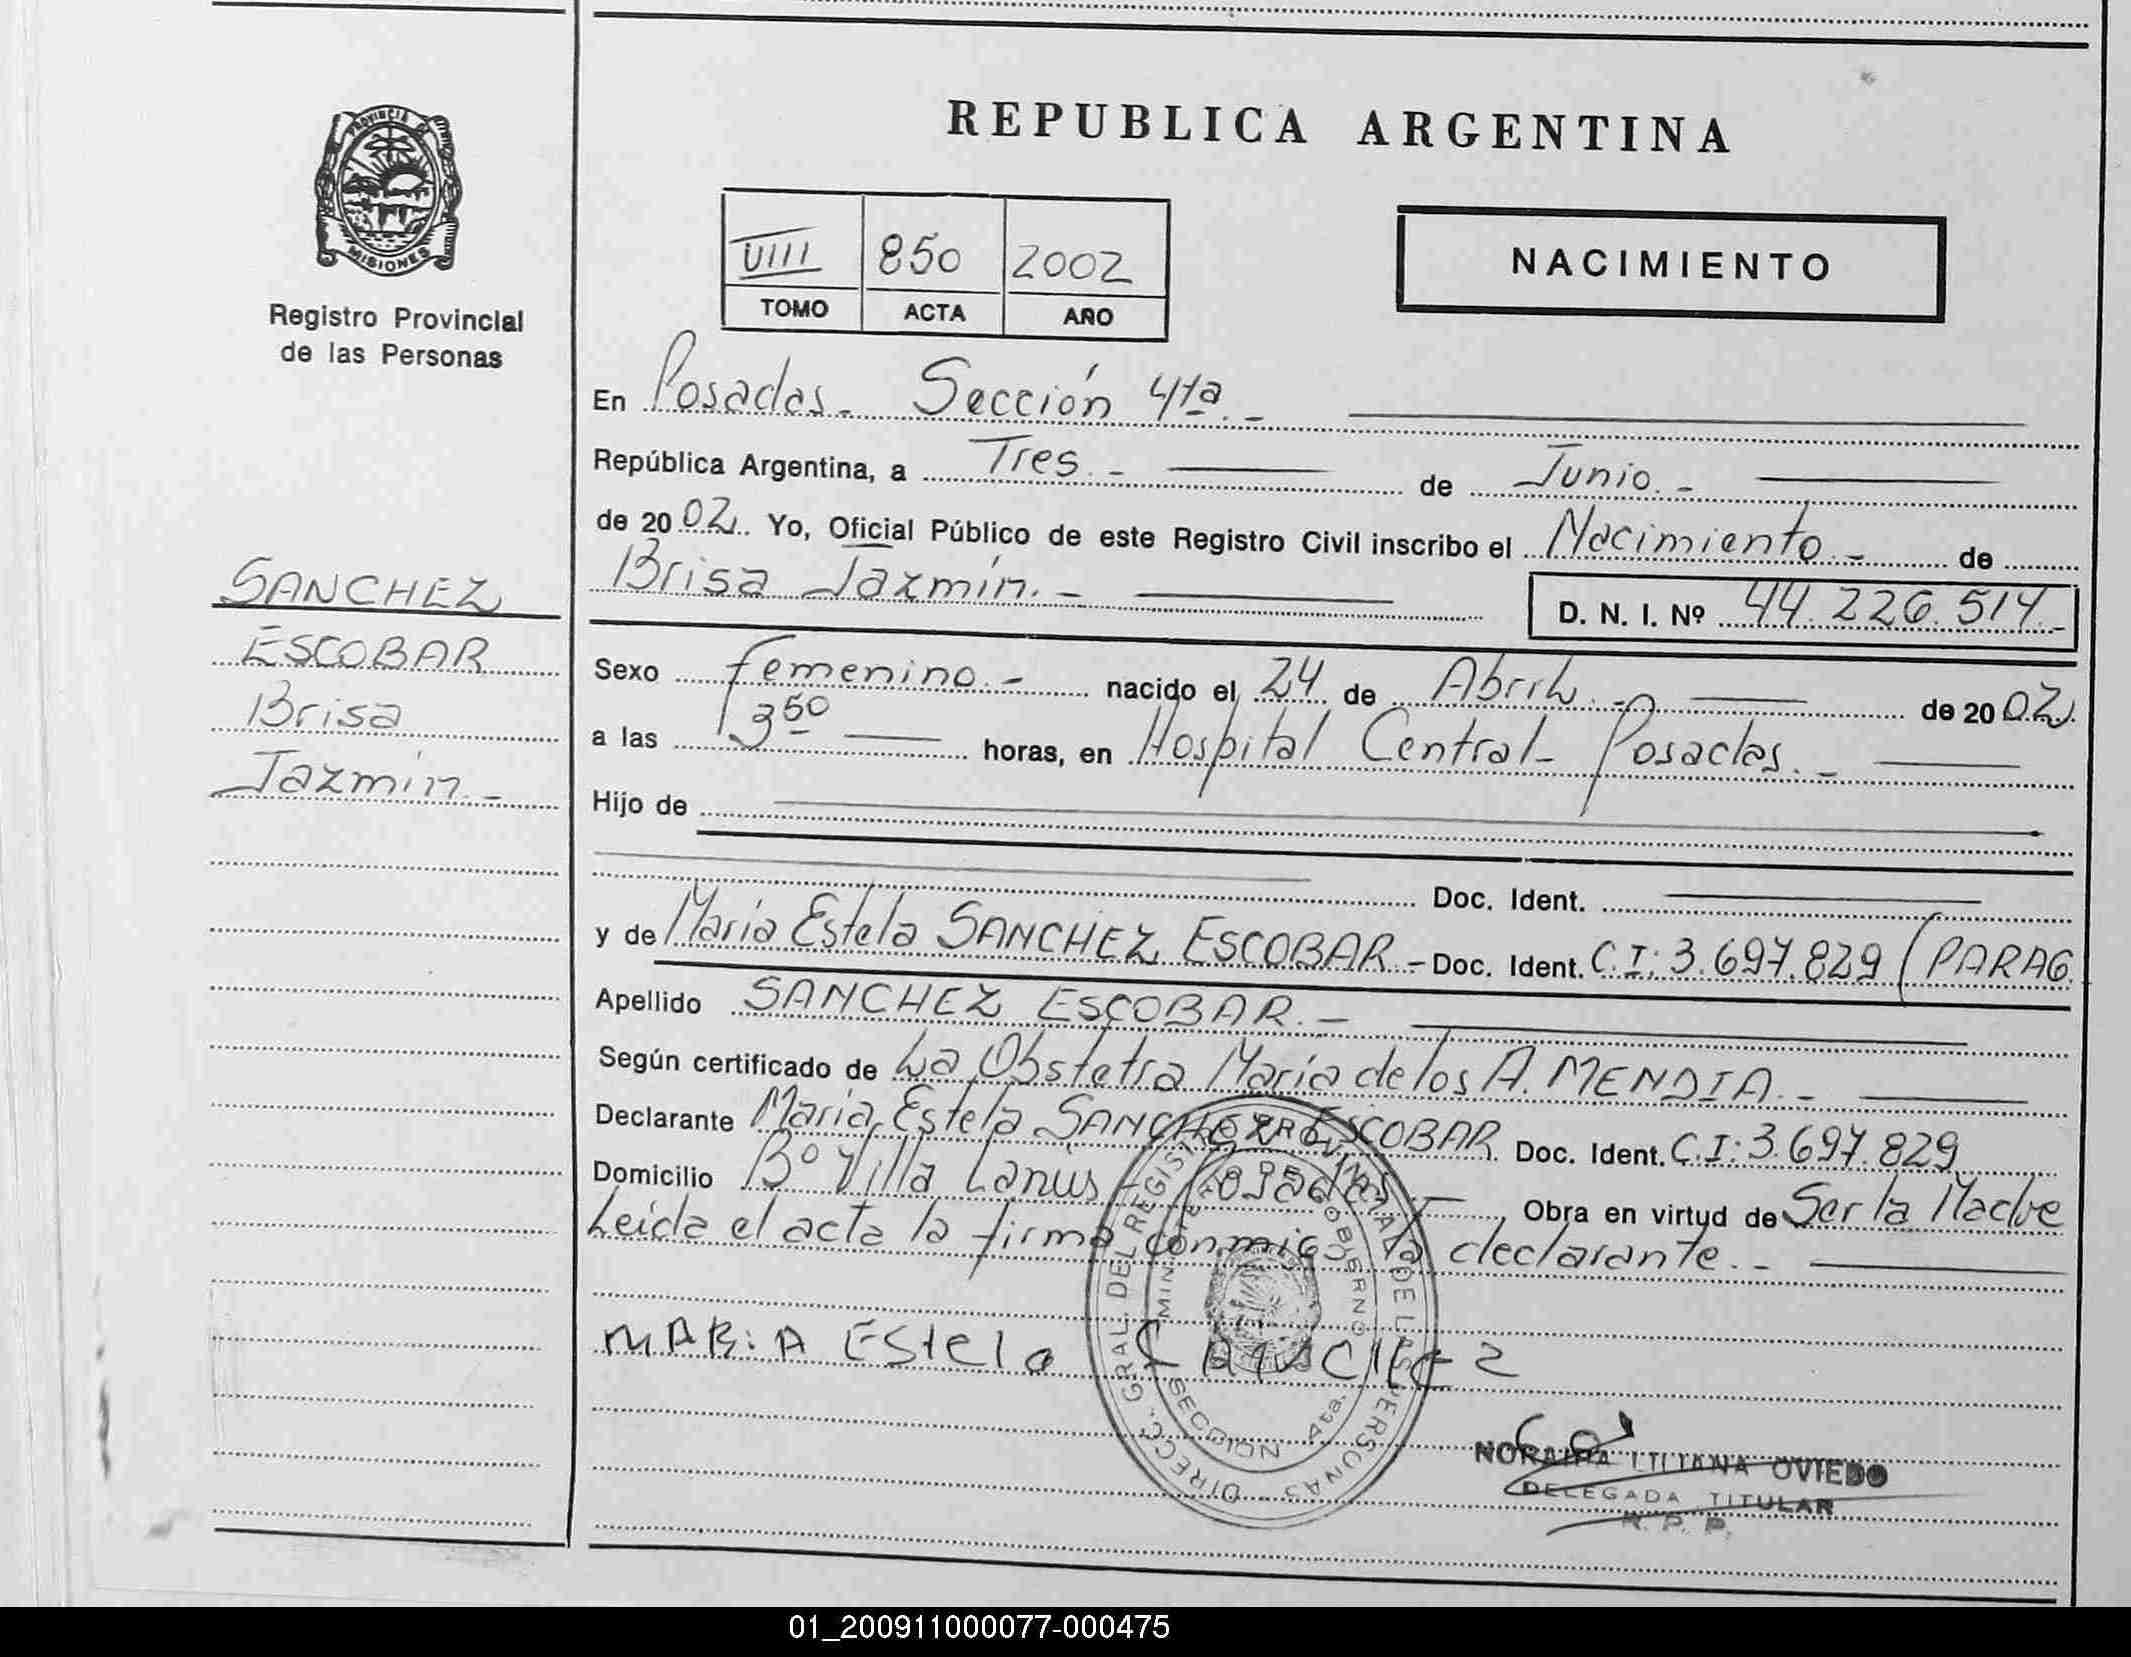 REPUBLICA ARGENTINA
PROVINCIA DE
MISIONES
Registro Provincial
de las Personas
VIII 850 2002
TOMO ACTA AÑO
NACIMIENTO
En Posadas.- Sección 4ta.-
República Argentina, a Tres.- de Junio.-
de 2002. Yo, Oficial Público de este Registro Civil inscribo el Nacimiento.- de
Brisa Jazmín.- D. N. I. Nº 44.226.514.-
SANCHEZ
ESCOBAR
Brisa
Jazmín.-
Sexo femenino.- nacido el 24 de Abril.- de 2002.
a las 3 50 horas, en Hospital Central- Posadas.-
Hijo de
Doc. Ident.
y de María Estela SANCHEZ ESCOBAR.- Doc. Ident. C.I: 3.697.829 (PARAG.
Apellido SANCHEZ ESCOBAR.-
Según certificado de La Obstetra María de los A. MENDIA.-
Declarante María Estela SANCHEZ ESCOBAR Doc. Ident. C.I: 3.697.829
Domicilio Bº Villa Lanús - Posadas - Obra en virtud de Ser la Madre
Leída el acta la firma conmigo la declarante.-
MARiA EStela SANCHEZ
DIRECC. GRAL. DEL REGISTRO PROVINCIAL DE LAS PERSONAS
MINISTERIO DE GOBIERNO
SECCION 4ta.
NORAIMA LILIANA OVIEDO
DELEGADA TITULAR
R. P. P.
01_200911000077-000475